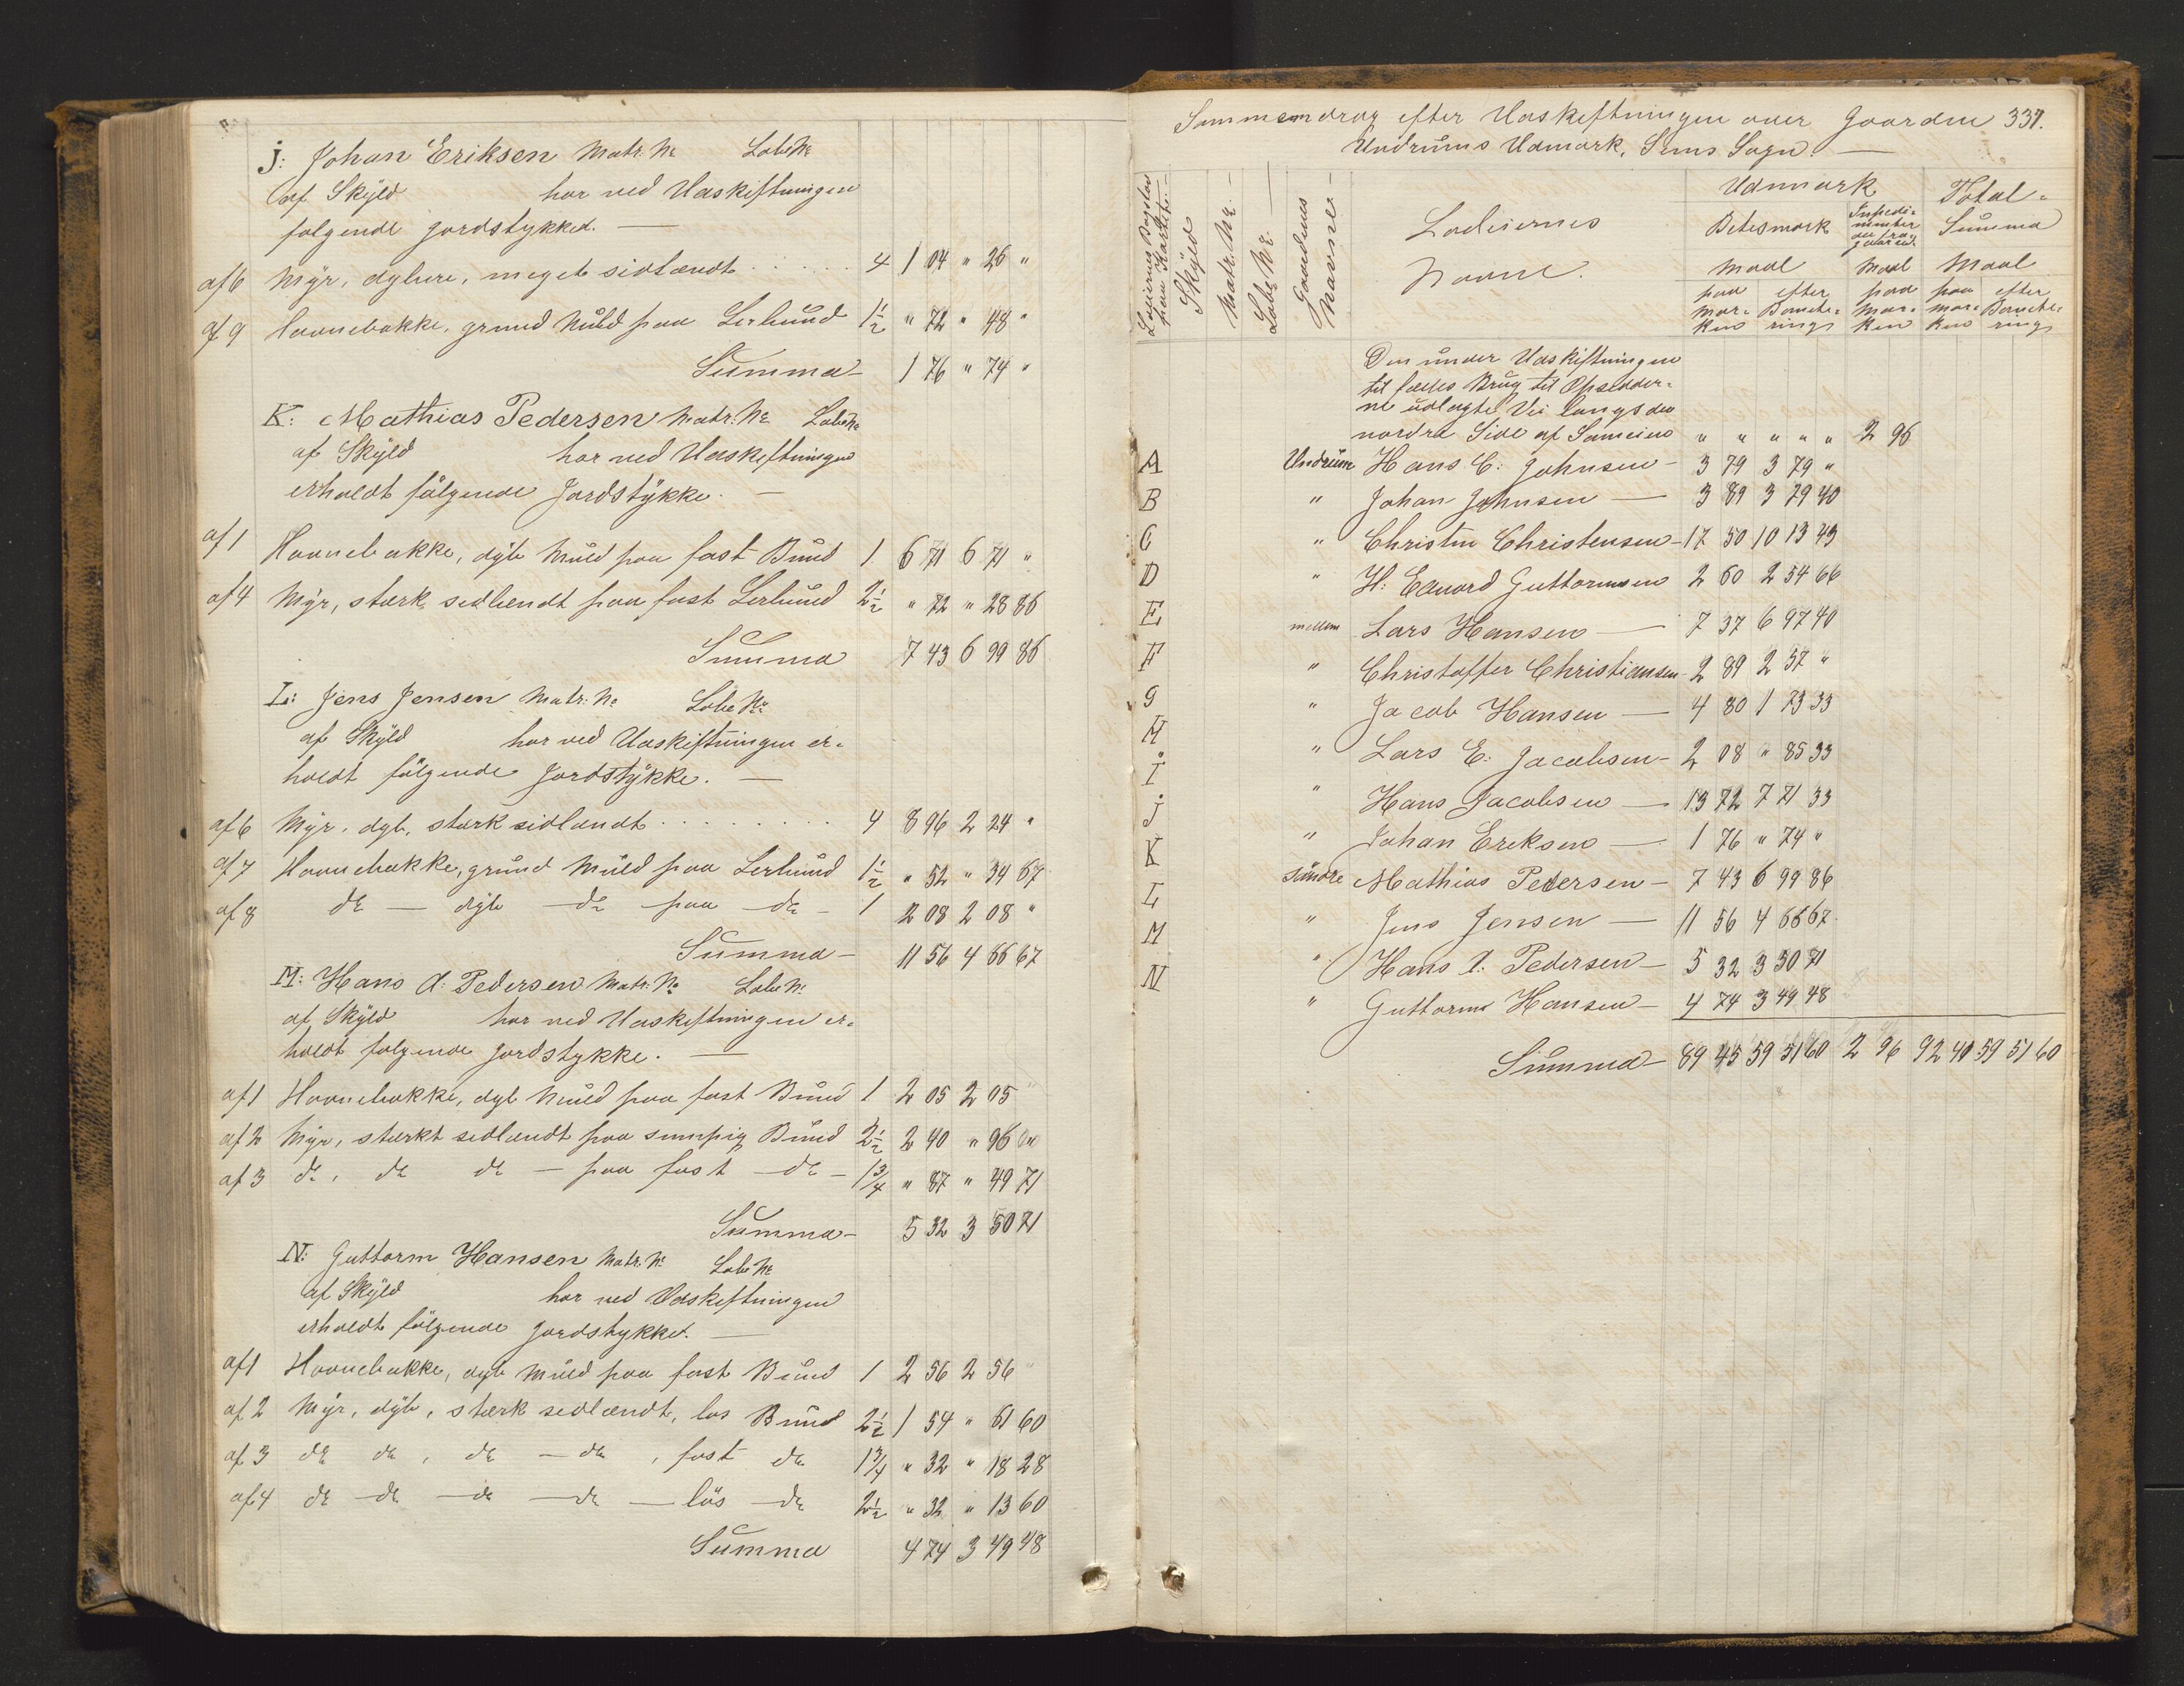 j: Johan Eriksen Matr. No Løbe No
af Skyld har ved Udskiftningen
følgende Jordstykker. —
af 6 Myr, dybere, meget sidlændt . . . . . . 4 1 04 " 26 "
af 9 Havnebakke, grund Muld paa Lerbund 1½ " 72 " 48 "
Summa 1 76 " 74 "
K: Mathias Pedersen Matr. No Løbe No
af Skyld har ved Udskiftningen
erholdt følgende Jordstykke. —
af 1 Havnebakke, dyb Muld paa fast Bund 1 6 71 6 71 "
af 4 Myr, stærk sidlændt paa fast Lerbund 2½ " 72 " 28 86
Summa 7 43 6 99 86
L: Jens Jensen Matr. No Løbe No
af Skyld har ved Udskiftningen er-
holdt følgende Jordstykke. —
af 6 Myr, dyb, stærk sidlændt . . . . . . . . 4 8 96 2 24 "
af 7 Havnebakke, grund Muld paa Lerbund 1½ " 52 " 34 67
af 8 do — dyb — do paa — do — 1 2 08 2 08 "
Summa — 11 56 4 66 67
M: Hans A. Pedersen Matr. No Løbe No
af Skyld har ved Udskiftningen er-
holdt følgende Jordstykke. —
af 1 Havnebakke, dyb Muld paa fast Bund 1 2 05 2 05 "
af 2 Myr, stærkt sidlændt paa sumpig Bund 2½ 2 40 " 96 "
af 3 do, do do — paa fast — do — 1¾ " 87 " 49 71
Summa — 5 32 3 50 71
N: Guttorm Hansen Matr. No Løbe No
af Skyld har ved Udskiftningen
erholdt følgende Jordstykker. —
af 1 Havnebakke, dyb Muld paa fast Bund 1 2 56 2 56 "
af 2 Myr, dyb, stærk sidlændt, løs Bund 2½ 1 54 " 61 60
af 3 do do, do — do, fast do 1¾ " 32 " 18 28
af 4 do — do — do — do — løs — do 2½ " 32 " 13 60
Summa 4 74 3 49 48
Sammendrag efter Udskiftningen over Gaarden 337.
Undrums Udmark, Sems Sogn. —
Lodeiernes Bogstav paa Kartet. —
Skyld
Matr. No. —
Løbe No. —
Gaardens Navne —
Lodeiernes
Navne.
Udmark
Total-
Summa
Betesmark
Maal Maal Maal
paa Mar- ken efter Bonite- rings paa Mar- ken paa Mar- ken efter Bonite- rings
Den under Udskiftningen
til fælles Brug til Opsidder-
ne udlagte Vei langs den
nordre Side af Sameien " " " " " 2 96
A Undrum Hans C. Johnsen — 3 79 3 79 "
B " Johan Johnsen — 3 89 3 79 40
C " Christen Christensen — 17 50 10 13 43
D " H. Edvard Guttormsen 2 60 2 54 66
E mellem Lars Hansen — 7 37 6 97 40
F " Christoffer Christiansen — 2 89 2 57 "
G " Jacob Hansen — 4 80 1 73 33
H " Lars E. Jacobsen — 2 08 " 85 33
I " Hans Jacobsen — 13 72 7 71 33
j " Johan Eriksen — 1 76 " 74 "
K søndre Mathias Pedersen — 7 43 6 99 86
L " Jens Jensen — 11 56 4 66 67
M " Hans A. Pedersen — 5 32 3 50 71
N " Guttorm Hansen — 4 74 3 49 48
Summa — 89 45 59 51 60 2 96 92 41 59 51 60